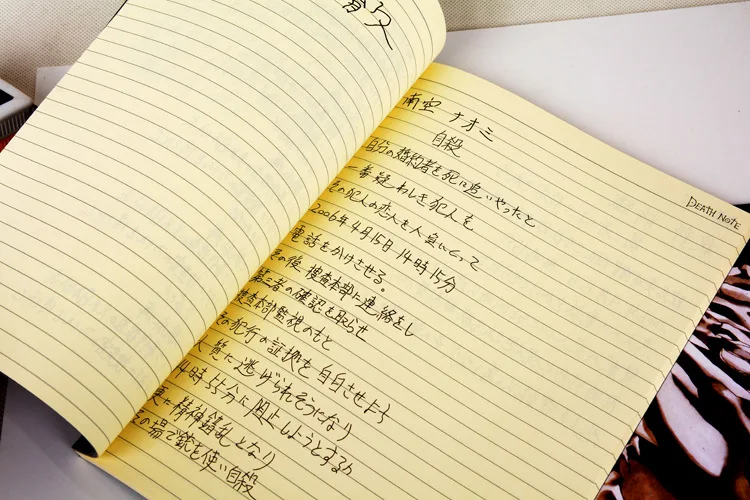 殺
DEATH NOTE
南空 ナオミ
自殺
自分の婚約者を死に追いやったと
一番疑わしき犯人を
その犯人の恋人を人質にとって
2006年4月15日 14時15分
電話をかけさせる。
その後、捜査本部に連絡をし
第三者の確認を取らせ
捜査本部監視のもと
その犯行の証拠を自白させよう
人質に逃げられそうになり
4時55分に阻止しようとするが
更に精神錯乱となり
その場で銃を使い自殺